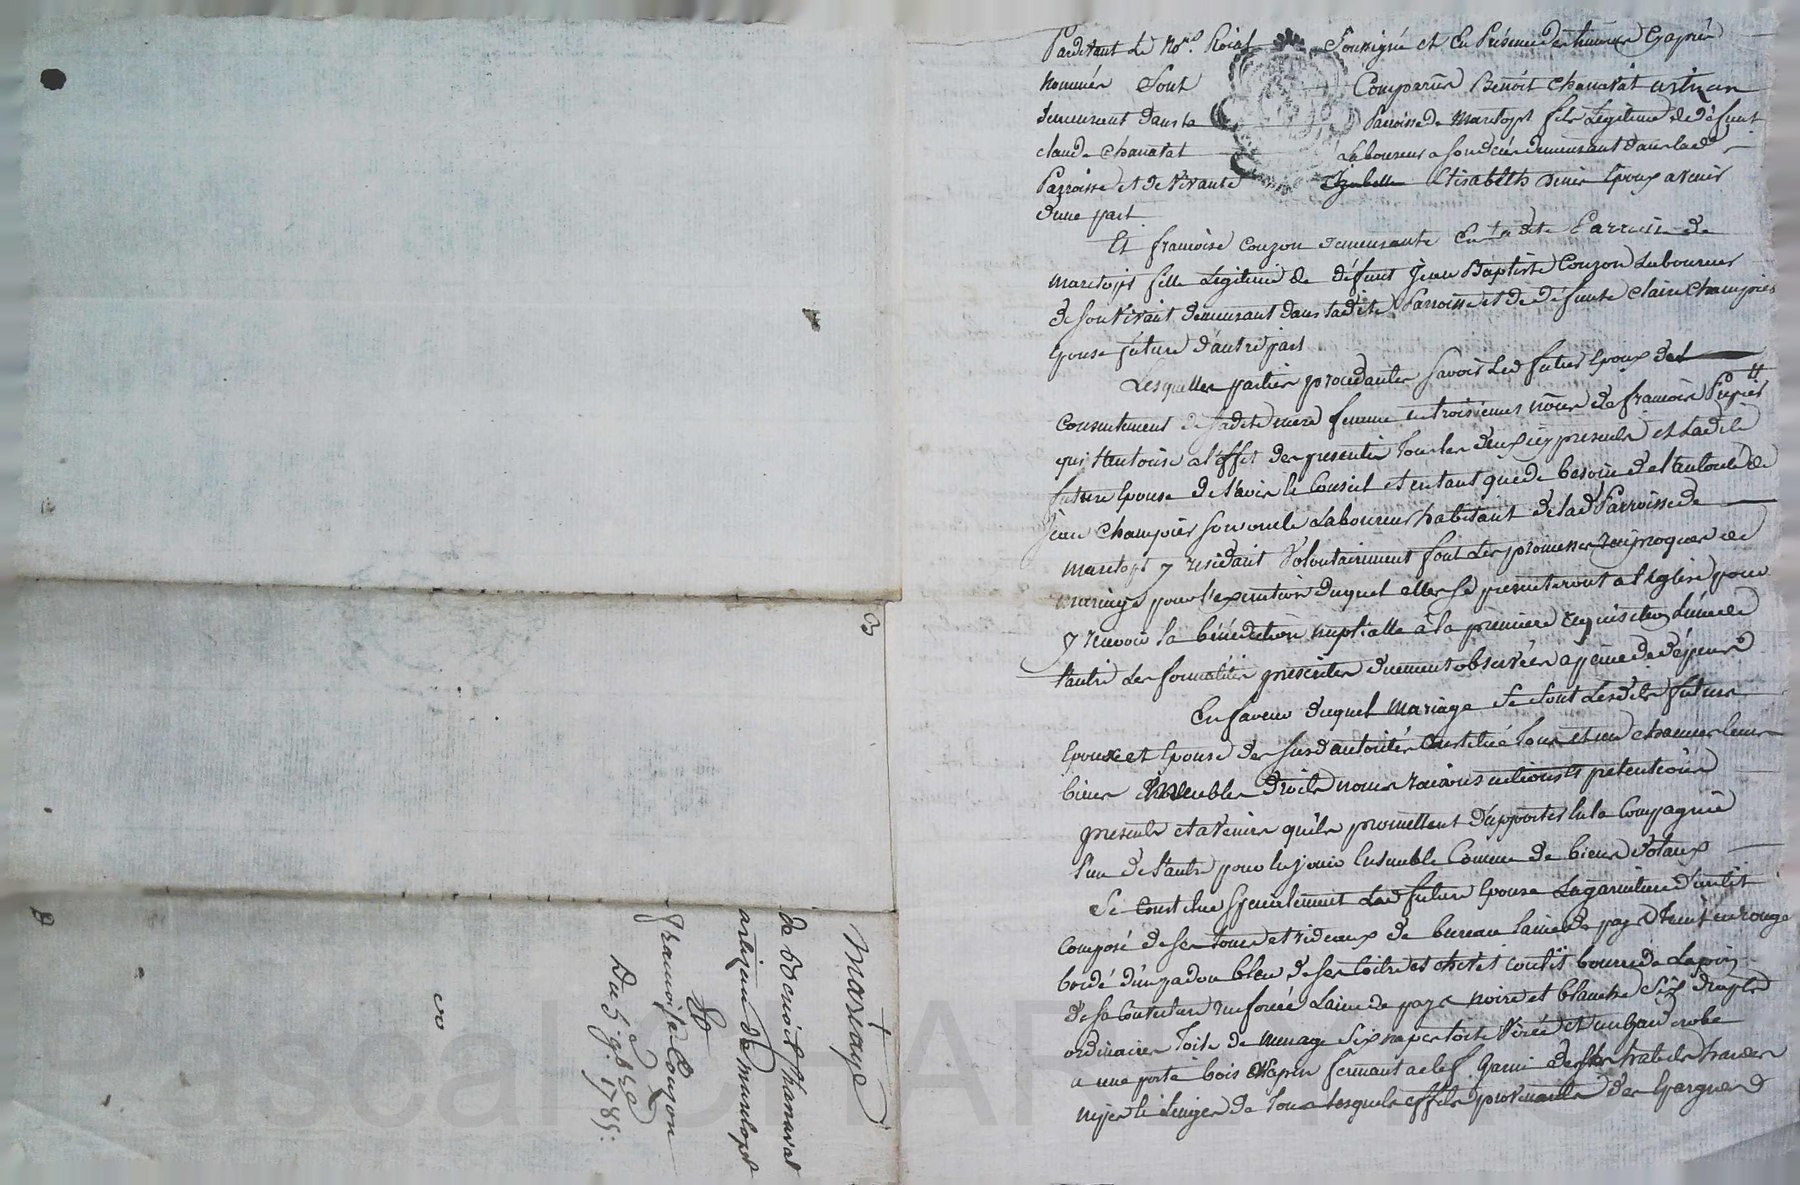 Pardevant Le Nore. Roial Soussigné et En Présence des témoins Cy après
nommés Sont Comparus Benoît Chanavat artisan
demeurant dans la Parroisse de Marclopt fils Légitime de défunt
claude Chanavat Laboureur a son décès demeurant dans lad.
Parroisse et de vivante Izabelle Elisabeth Epoux avenir
d'une part
Et françoise couzon demeurante En la dite Parroisse de
Marclopt fille Légitime de défunt Jean Baptiste Couzon Laboureur
de son vivant demeurant dans ladite Parroisse et de défunte claire Champier
Epouse future d'autre part
Lesquelles parties procedantes savoir Led futur Epoux de l
Consentement de sadite mere femme en troisiemes nôces de françois Pupier
qui l'autorise a l'effet des presentes tous les deux icy presents et ladite
future Epouse de l'avis le Conseil et en tant que de besoin de l'autorité de
Jean Champier son oncle Laboureur habitant de lad Parroisse de
Marclopt y residant Volontairement font Les promesses reciproques de
mariage pour l'execution duquel elles se presenteront a l'Eglise pour
y recevoir la bénédiction nuptialle à la premiere requisition d'une de
l'autre Les formalités prescrites duement observées a peine de dépens
En faveur duquel Mariage Se sont Lesdits futurs
Epoux et Epouse des susd autorités Constitué tous et un chacuns leurs
biens Meubles droits noms raisons actions et pretentions
presents et avenir qu'ils promettent d'apporter En la Compagnie
l'un de l'autre pour En jouir Ensemble Comme de biens dotaux
Se Constitue specialement Lad future Epouse La garniture d'un lit
Composé de ses tours et rideaux de bureau laine de pays teint en rouge
bordé d'un padou bleu de ses toiles et chevet coutil bourre de Lapin
de sa Couverture laine de pays noire et blanche Six draps
ordinaires Toile de menage Six napes toile et un gard robe
a une porte bois Sapin fermant a clef Garni de ses habits hardes
nipes et Linges de tous lesquels effets provenants des Epargnes
3
Mariage
de benoit Chanavat
artizan de marclopt
Et
françoise Couzon
Du 5 9bre 1785.